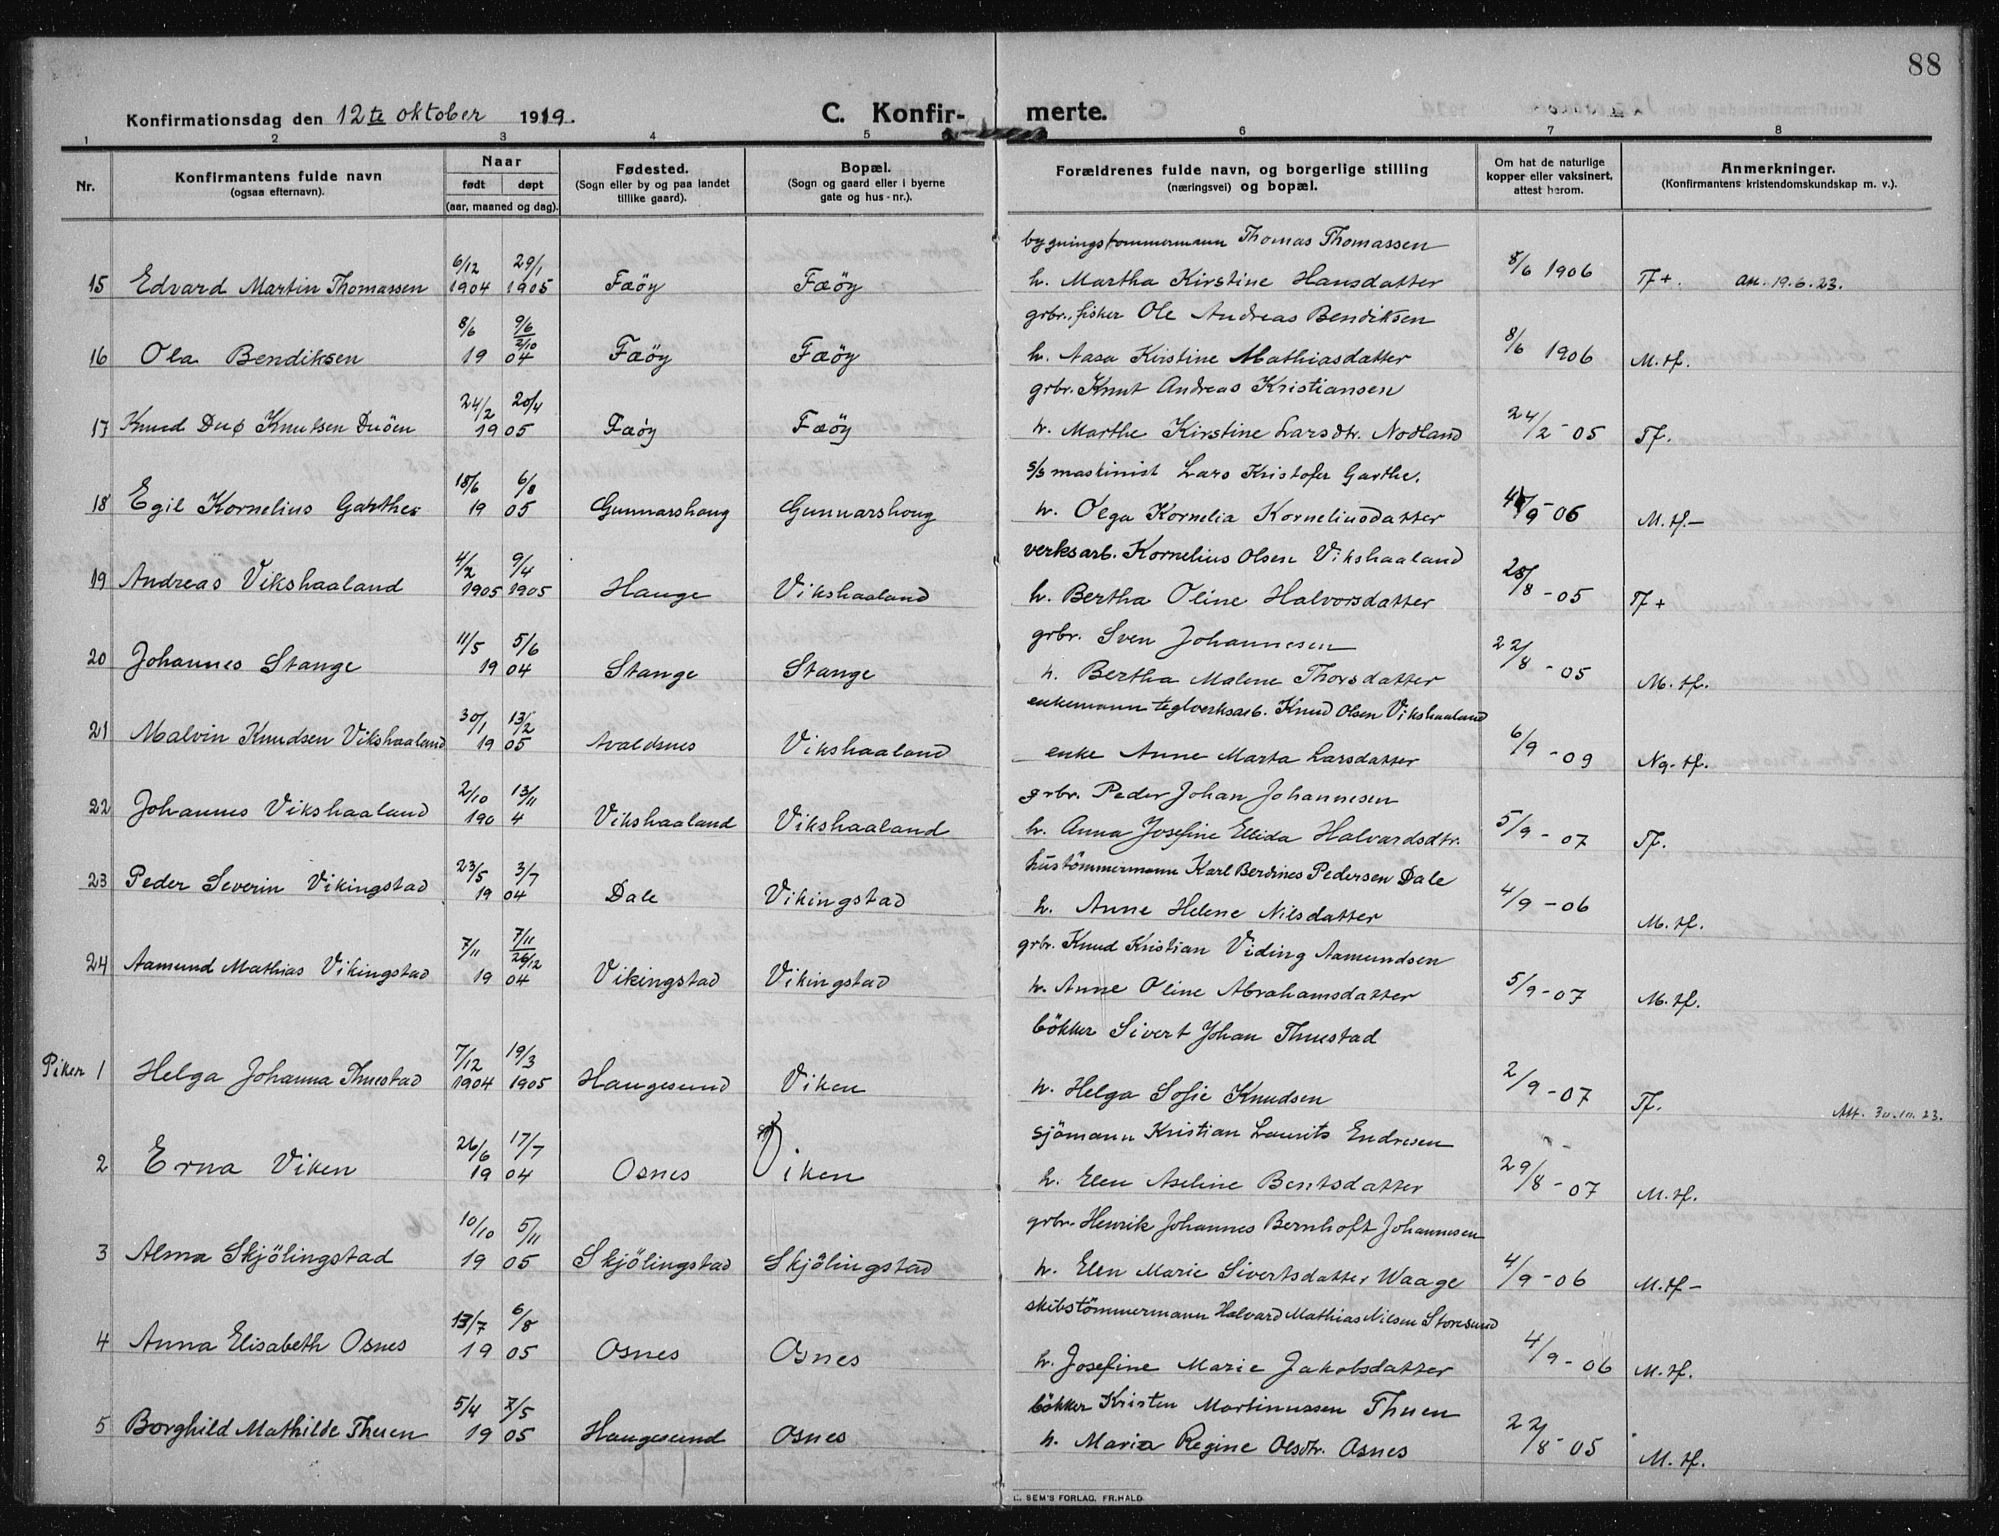 88
Konfirmationsdag den 12te oktober 1919. C. Konfirmerte.
1 2 3 4 5 6 7 8
Nr. Konfirmantens fulde navn (ogsaa efternavn). Naar født døpt (aar, maaned og dag). Fødested. (Sogn eller by og paa landet tillike gaard). Bopæl. (Sogn og gaard eller i byerne gate og hus-nr.). Forældrenes fulde navn, og borgerlige stilling (næringsvei) og bopæl. Om hat de naturlige kopper eller vaksinert, attest herom. Anmerkninger. (Konfirmantens kristendomskundskap m. v.).
bygningstømmermann Thomas Thomassen
15 Edvard Martin Thomassen 6/12 1904 29/1 1905 Fæöy Fæöy h. Martha Kirstine Hansdatter 8/6 1906 Tf +. att. 19.6.23.
grbr., fisker Ole Andreas Bendiksen
16 Ola Bendiksen 8/6 9/6 2/10 1904 Fæöy Fæöy h. Aasa Kirstine Mathiasdatter 8/6 1906 M. tf.
grbr. Knut Andreas Kristiansen
17 Knud Duø Knutsen Duöen 24/2 20/4 1905 Fæöy Fæöy h. Marthe Kirstine Larsdtr. Nodland 24/2 - 05 Tf.
s/s maskinist Lars Kristofer Garthe.
18 Egil Kornelius Garthe 18/6 6/8 1905 Gunnarshaug Gunnarshoug h. Olga Kornelia Korneliusdatter 4/9 - 06 M. tf. -
verksarb. Kornelius Olsen Vikshaaland
19 Andreas Vikshaaland 4/2 1905 9/4 1905 Hauge Vikshaaland h. Bertha Oline Halvorsdatter 25/8 - 05 Tf +
grbr. Sven Johannesen
20 Johannes Stange 11/5 5/6 1904 Stange Stange h. Bertha Malene Thorsdatter 22/8 - 05 M. tf.
enkemann teglverksarb. Knud Olsen Vikshaaland
21 Malvin Knudsen Vikshaaland 30/1 13/2 1905 Avaldsnes Vikshaaland enke Anne Marta Larsdatter 6/9 - 09 Ng. tf.
grbr. Peder Johan Johannesen
22 Johannes Vikshaaland 2/10 13/11 1904 Vikshaaland Vikshaaland h. Anna Josefine Ellida Halvardsdtr. 5/9 - 07 Tf.
hustömmermann Karl Berdines Pedersen Dale
23 Peder Severin Vikingstad 23/5 3/7 1904 Dale Vikingstad h. Anne Helene Nilsdatter 4/9 - 06 M. tf.
grbr. Knud Kristian Viding Aamundsen
24 Aamund Mathias Vikingstad 7/11 7/11 26/12 1904 Vikingstad Vikingstad h. Anne Oline Abrahamsdatter 5/9 - 07 M. tf.
bökker Sivert Johan Thuestad
Piker 1 Helga Johanna Thuestad 7/12 1904 19/3 1905 Haugesund Viken h. Helga Sofie Knudsen 2/9 - 07 Tf. Att. 30.10.23.
sjömann Kristian Laurits Endresen
2 Erna Viken 26/6 17/7 1904 Osnes Viken h. Elen Aseline Bentsdatter 29/8 - 07 M. tf.
grbr. Henrik Johannes Bernhoft Johannesen
3 Alma Skjölingstad 10/10 5/11 1905 Skjölingstad Skjölingstad h. Elen Marie Sivertsdatter Waage 4/9 - 06 M. tf -
skibstömmermann Halvard Mathias Nilsen Storesund
4 Anna Elisabeth Osnes 13/7 6/8 1905 Osnes Osnes h. Josefine Marie Jakobsdatter 4/9 - 06 M. tf.
bökker Kristen Martinussen Thuen
5 Borghild Mathilde Thuen 5/4 7/5 1905 Haugesund Osnes h. Maria Regine Olsdtr. Osnes 22/8 - 05 M. tf.
SEM'S FORLAG, FR.HALD